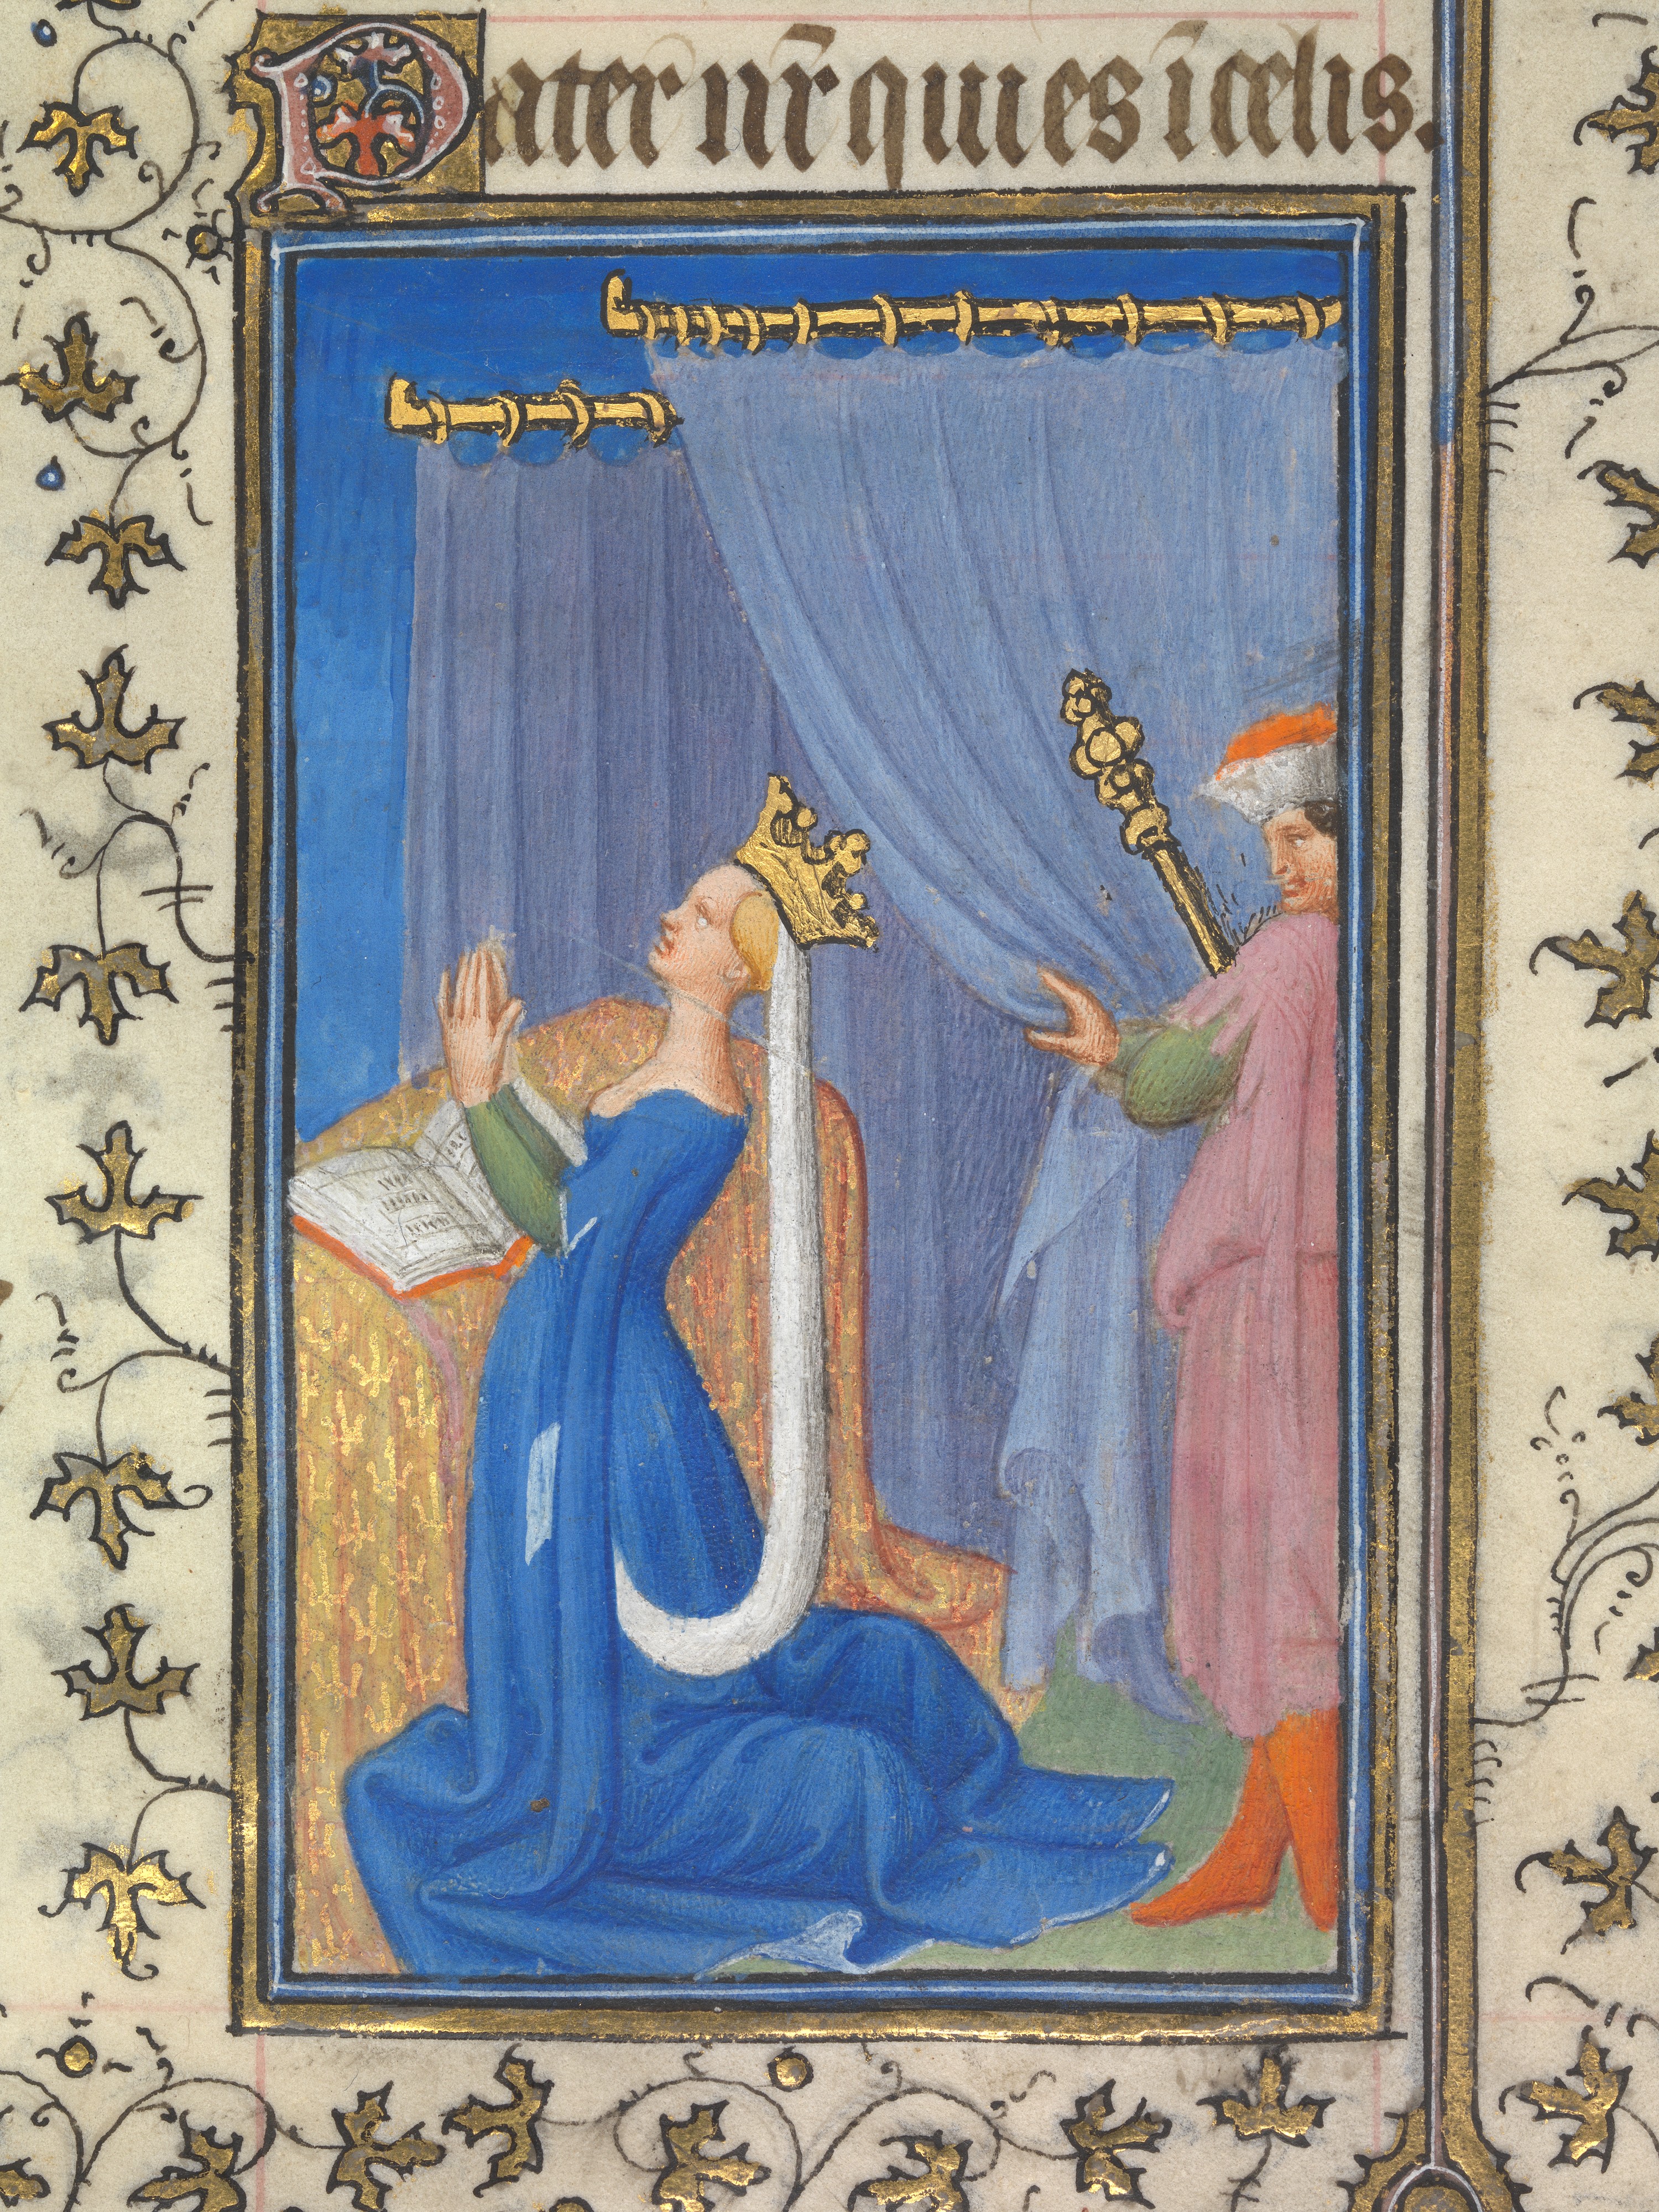 Pater nr̄ qui es ī celis.